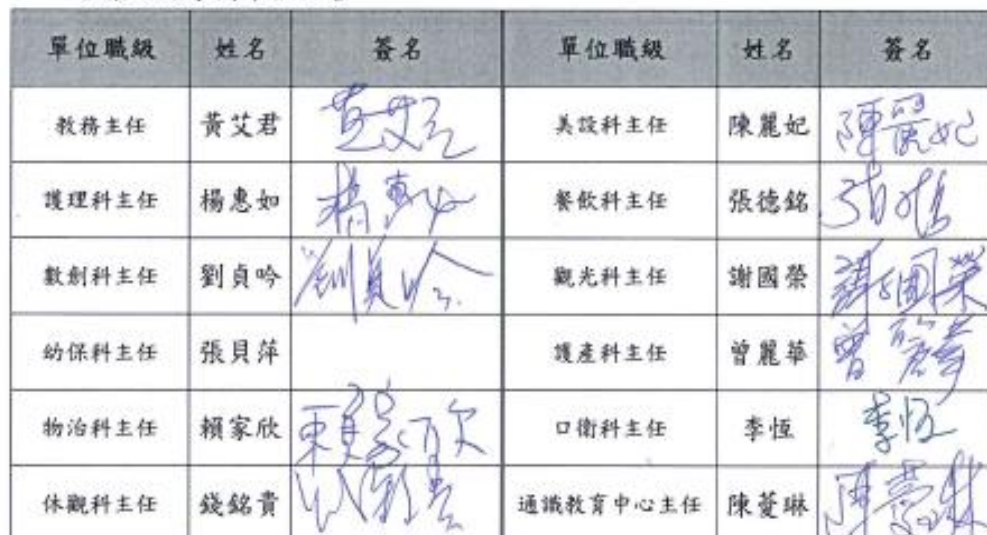 單位職級 姓名 簽名 單位職級 姓名 簽名
教務主任 黃艾君 黃艾君 美設科主任 陳麗妃 陳麗妃
護理科主任 楊惠如 楊惠如 餐飲科主任 張德銘
數創科主任 劉貞吟 劉貞吟 觀光科主任 謝國榮 謝國榮
幼保科主任 張貝萍 護產科主任 曾麗華 曾麗華
物治科主任 賴家欣 賴家欣 口衛科主任 李恆 李恆
休觀科主任 錢銘貴 通識教育中心主任 陳薆琳